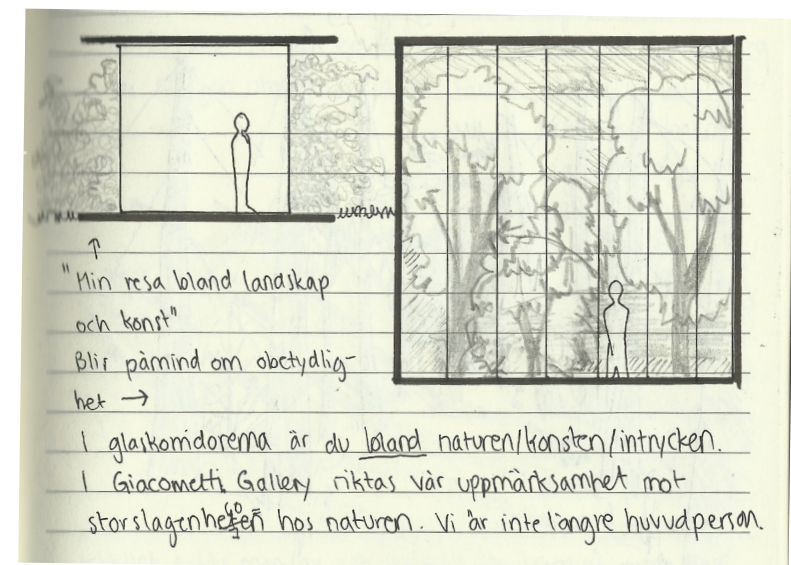 "Min resa bland landskap
och konst"
Blir påmind om obetydlig-
het →
I glaskorridorerna är du bland naturen/konsten/intrycken.
I Giacometti Gallery riktas vår uppmärksamhet mot
storslagenheten hos naturen. Vi är inte längre huvudperson.